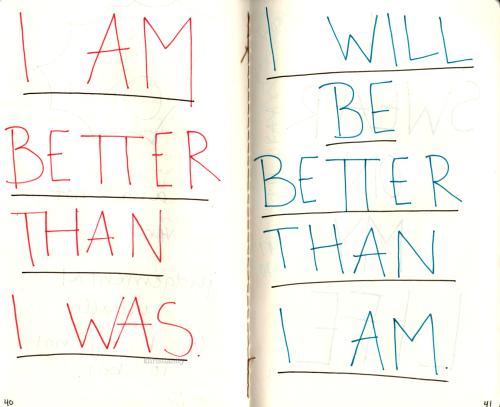 I AM
BETTER
THAN
I WAS.
40
I WILL
BE
BETTER
THAN
I AM.
41